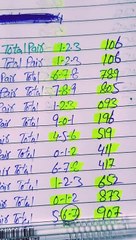 Total Pair 1-2-3 106
Total Pair 1-2-3 106
Pair Total 6-7-8 789
Pair Total 7-8-9 805
Pair Total 1-2-3 093
Pair Total 9-0-1 196
Pair Total 4-5-6 599
Total 0-1-2 411
Pair Total 6-7-8 417
Total 1-2-3 652
Total 0-1-2 873
Total 5 6-7 907